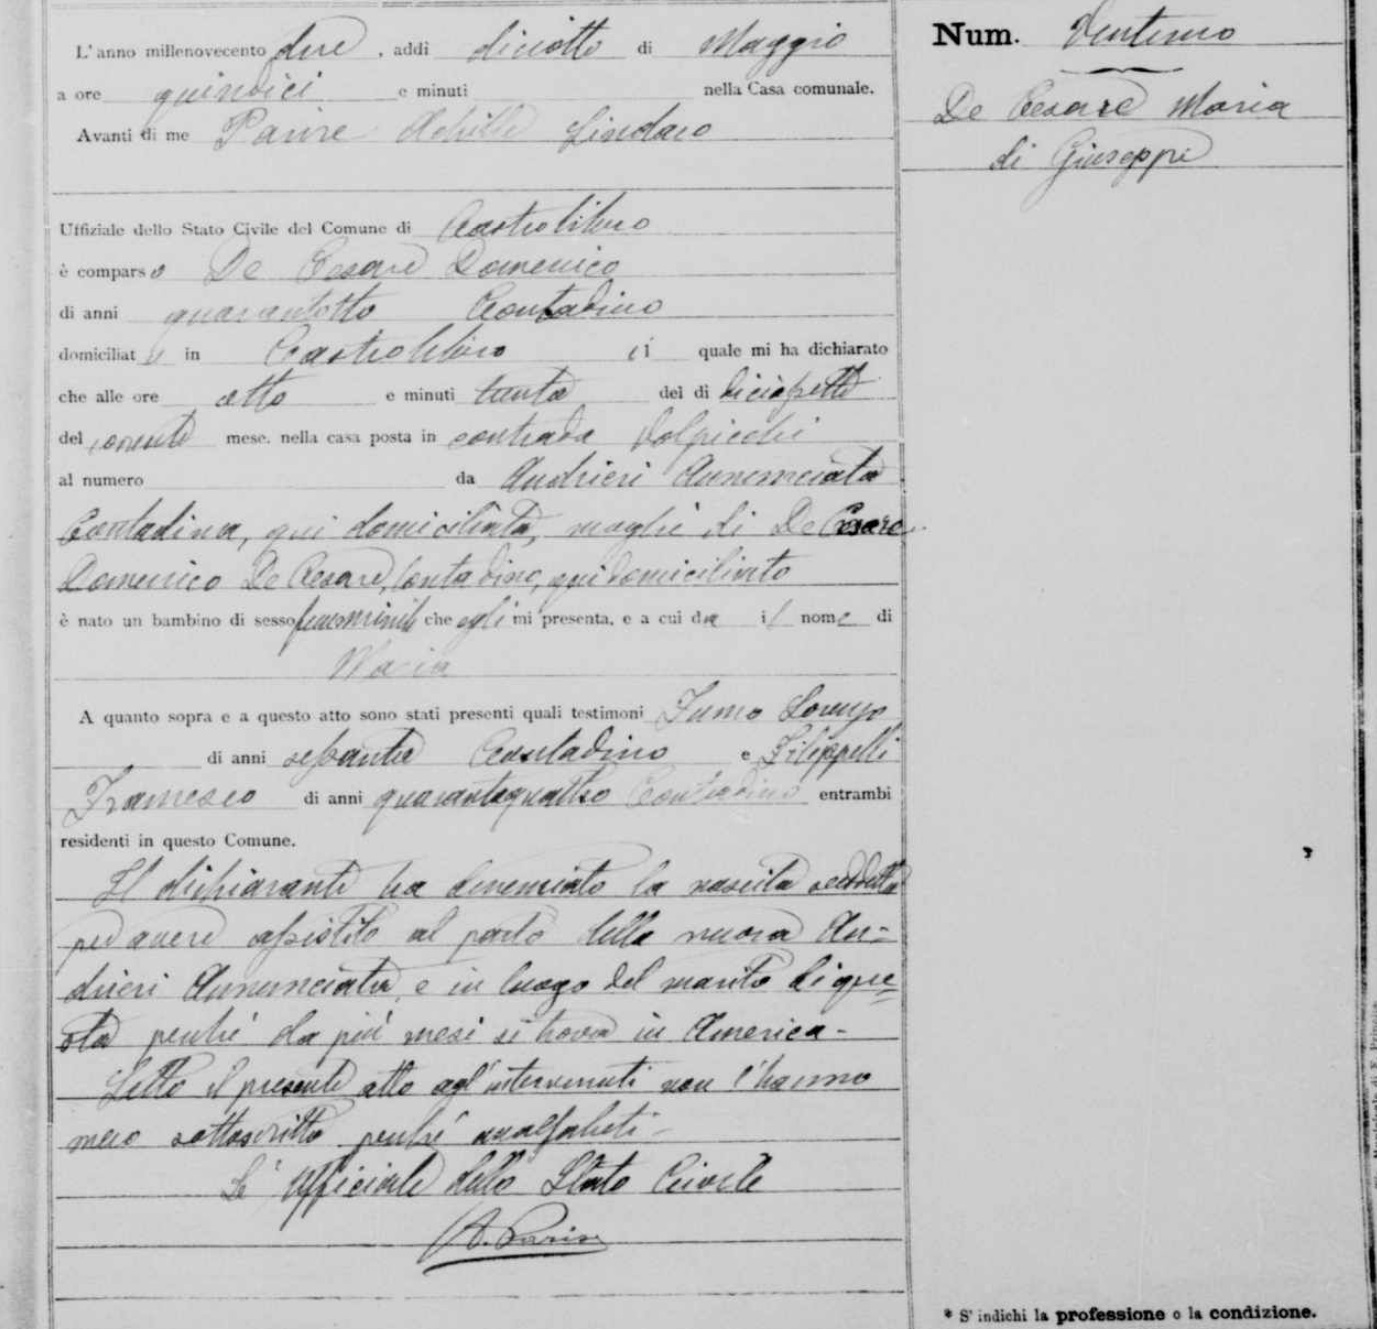 L'anno millenovecento due, addi diciotto di Maggio
a ore quindici e minuti nella Casa comunale.
Avanti di me Parise Achille Sindaco
Uffiziale dello Stato Civile del Comune di Castrolibero
è comparso De Cesare Domenico
di anni quarantotto Contadino
domiciliato in Castrolibero il quale mi ha dichiarato
che alle ore otto e minuti trenta del di diciassette
del corrente mese, nella casa posta in contrada Volpicchi
al numero da Andrieri Annunciata
Contadina, qui domiciliata, moglie di De Cesare
Domenico De Cesare, Contadino, qui domiciliato
è nato un bambino di sesso femminile che egli mi presenta, e a cui da il nome di
Maria
A quanto sopra e a questo atto sono stati presenti quali testimoni Fumo Lorenzo
di anni sessanta Contadino e Filippelli
Francesco di anni quarantaquattro Contadino entrambi
residenti in questo Comune.
Il dichiarante ha denunciato la nascita suddetta
per avere assistito al parto della nuora An=
drieri Annunciata, e in luogo del marito di que=
sta perché da più mesi si trova in America -
Letto il presente atto agl'intervenuti non l'hanno
meco sottoscritto perché analfabeti -
L'Ufficiale dello Stato Civile
A. Parise
Num. Ventuno
De Cesare Maria
di Giuseppe
* S' indichi la professione o la condizione.